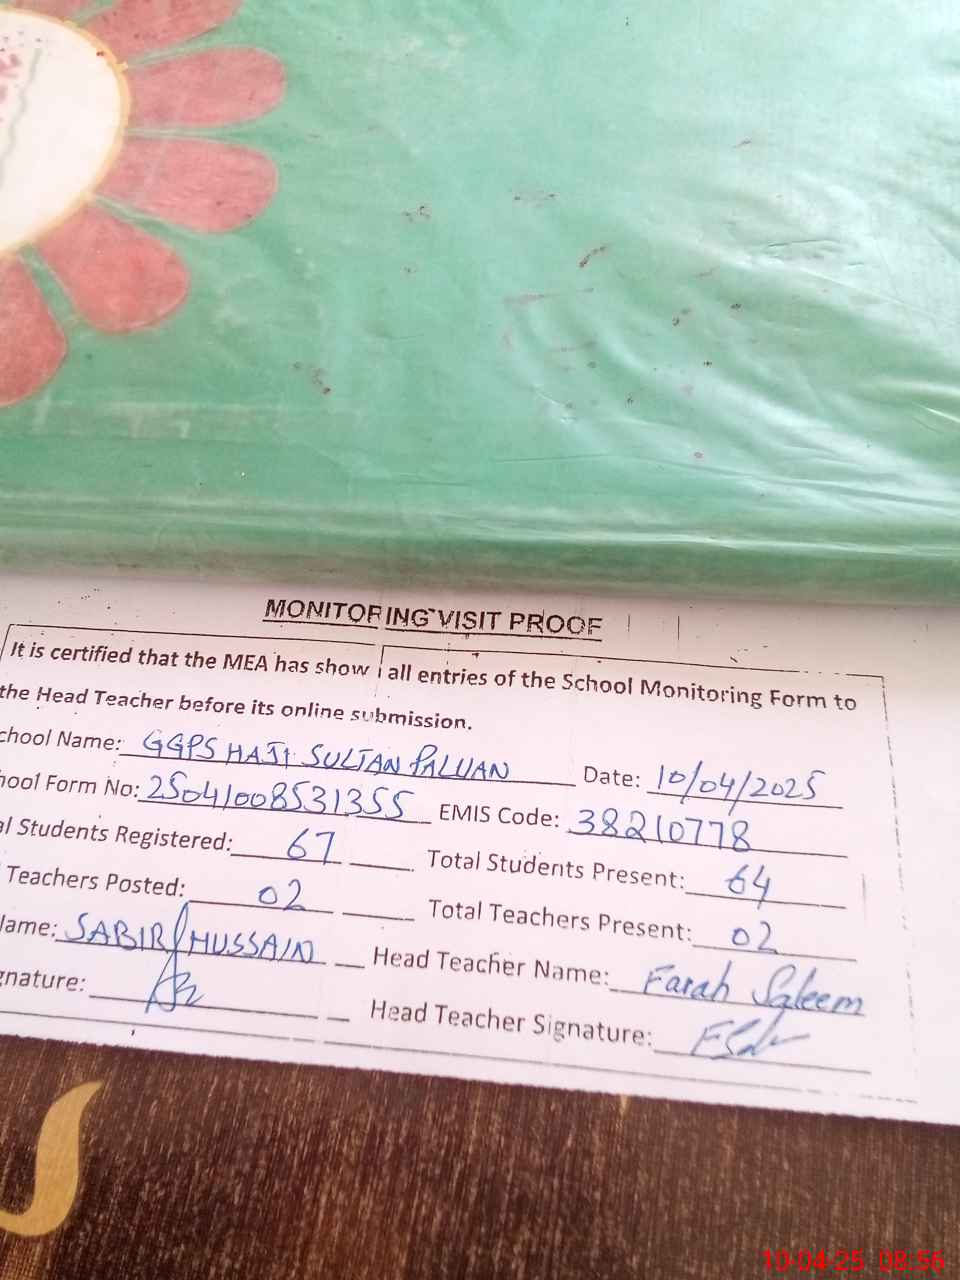 MONITORING VISIT PROOF
It is certified that the MEA has show all entries of the School Monitoring Form to
the Head Teacher before its online submission.
chool Name: GGPS HAJI SULTAN PALUAN Date: 10/04/2025
hool Form No: 25041008531355 EMIS Code: 38210778
al Students Registered: 67 Total Students Present: 64
Teachers Posted: 02 Total Teachers Present: 02
Name: SABIR HUSSAIN Head Teacher Name: Farah Saleem
gnature: Head Teacher Signature:
10-04-25 08:56